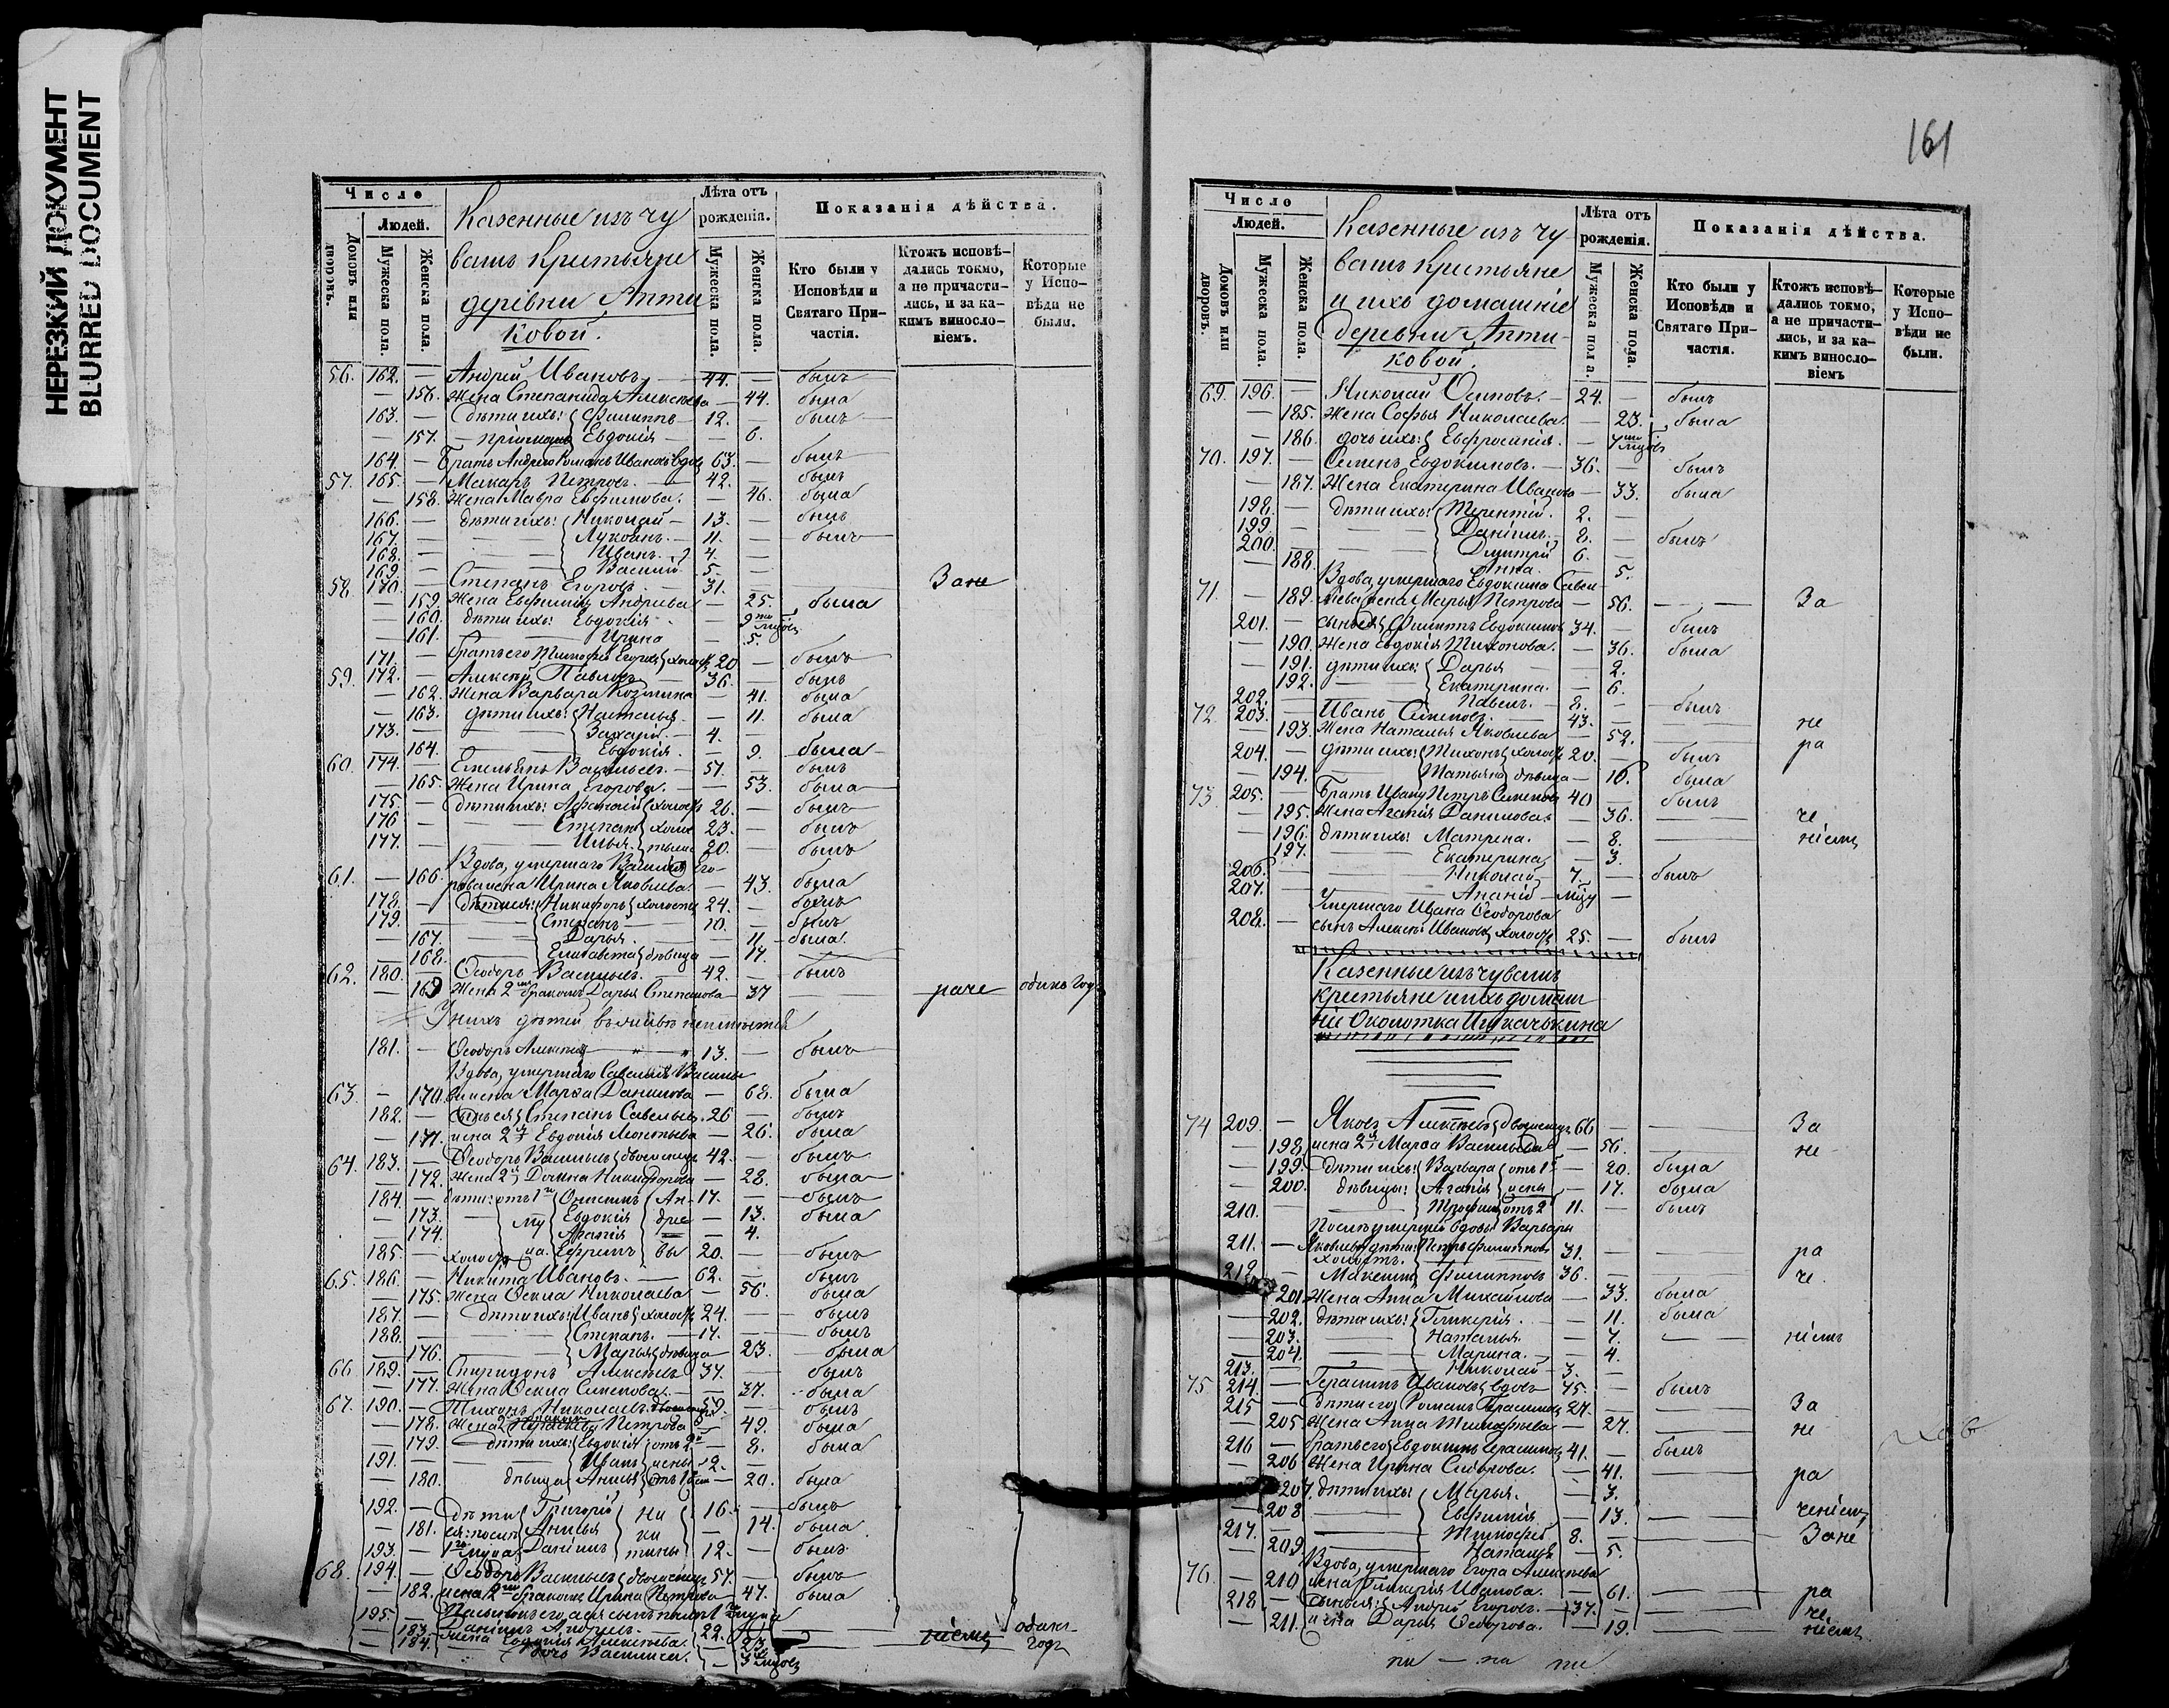 НЕРЕЗКИЙ ДОКУМЕНТ
BLURRED DOCUMENT
Число
Людей.
Домовъ или дворовъ.
Мужеска пола.
Женска пола.
Казенные изъ чу
вашъ крестьяне
деревни Апти
ковой.
Лѣта отъ рожденія.
Мужеска пола.
Женска пола.
Показанія дѣйства.
Кто были у Исповѣди и Святаго Причастія.
Ктожъ исповѣдались токмо, а не причастились, и за какимъ винословіемъ.
Которые у Исповѣди не были.
56. 162. — Андрей Ивановъ. — 44. — былъ
— 156. Жена Степанида Алексѣева — 44. была
163. — Дѣти ихъ: Филиппъ — 12. — былъ
— 157. Евдокія — 6.
164. — Братъ Андрею Романъ Ивановъ вдов 63. — былъ
57. 165. — Макаръ Петровъ. — 42. — былъ
— 158. Жена Мавра Евфимова. — 46. была
166. — дѣти ихъ: Николай — 13. — былъ
167. — Лукоянъ. — 11. — былъ
168. — Иванъ. 4. —
169. — Василій 5. —
58. 170. — Степанъ Егоровъ. — 31. — За не
— 159. Жена Евфимія Андреева — 25. была
— 160. дѣти ихъ: Евдокія — 9
— 161. Ирина — 5.
171. — братъ его Тимофей Егоровъ холост 20 — былъ
59. 172. — Алексѣй Павловъ — 36. — былъ
— 162. Жена Варвара Козмина — 41. была
— 163. дѣти ихъ: Наталья — 11. была
173. — Захарій. — 4. —
— 164. Евдокія. — 9. была
60. 174. — Емельянъ Васильевъ. — 51. — былъ
— 165. Жена Ирина Егорова. — 53. была
175. — дѣти ихъ: Афанасій холост 26. — былъ
176 — Степанъ холос 23. — былъ
177. — Илья 20. — былъ
Вдова, умершаго Василія Его-
61. — 166. рова жена Ирина Яковлева. — 43. была
178. — дѣти ея: Никифоръ холостъ 24. — былъ
179. — Степанъ — 10. — былъ
— 167. Дарья. — 11. была.
— 168. Елисавета дѣвица — 17. —
62. 180. — Ѳеодоръ Васильевъ. — 42. — былъ
— 169 Жена 2 бракомъ Дарья Степанова — 37 — раче одинъ годъ
У нихъ дѣтей
181. — Ѳеодоръ Алексѣевъ 13. — былъ
Вдова, умершаго Савелія Василь
63. — 170. ева жена Марѳа Данилова — 68. была
182. — сынъ ея Степанъ Савельевъ. 26 — былъ
— 171. жена 2 Евдокія Леонтьева — 26. была
64. 183. — Ѳеодоръ Васильевъ двоженецъ 42. — былъ
— 172. Жена 2 Домна Никифорова — 28. была
184. — дѣти: отъ 1 Онисимъ Ан- 17. — былъ
— 173. му Евдокія дрее — 13. была
— 174. Агапія — 4.
185. — холостъ Ефремъ вы 20. — былъ
65. 186. — Никита Ивановъ. — 62. — былъ
— 175. Жена Ѳекла Николаева — 56. была
187. — дѣти ихъ: Иванъ холост 24. — былъ
188. — Степанъ. — 17. — былъ
— 176. Марья дѣвица — 23. была
66 189. — Спиридонъ Алексѣевъ 37. — былъ
— 177. Жена Ѳекла Семенова. — 37. была
67. 190. — Тихонъ Николаевъ двоженецъ 59. — былъ
— 178. Жена 2 Петрова — 49. была
— 179. дѣти ихъ: Евдокія отъ 2 — 8. была
191. — Иванъ жены 2. —
— 180. дѣвица Анисья отъ 1 — 20. была
192. — Дѣти Григорій Ни 16. — былъ
— 181. ея: послѣ Анисья ки — 14. была
193. — 1 мужа Даніилъ тины 12. — былъ
68. 194. — Ѳеодоръ Васильевъ двоженецъ 57. — былъ
— 182. жена 2 бракомъ Ирина Петрова — 47. была
195. —
Даніилъ Андреевъ. — 22.
— 183. жена Евдокія Алексѣева. — 23. — ніемъ одинъ годъ
— 184. дочь Василиса. — 3
161
Число
Людей.
Домовъ или дворовъ.
Мужеска пола.
Женска пола.
Казенные изъ чу
вашъ крестьяне
и ихъ домашніе
деревни Апти-
ковой.
Лѣта отъ рожденія.
Мужеска пола.
Женска пола.
Показанія дѣйства.
Кто были у Исповѣди и Святаго Причастія.
Ктожъ исповѣдались токмо, а не причастились, и за какимъ винословіемъ
Которые у Исповѣди не были.
69. 196. — Николай Осиповъ. — 24. — былъ
— 185. Жена Софья Николаева. — 23. была
— 186. дочь ихъ: Евфросинія. — 7
70. 197. — Семенъ Евдокимовъ. — 36. — былъ
— 187. Жена Екатерина Иванова — 33. была
198. — дѣти ихъ: Терентій. 2. —
199. — Даніилъ. 8. — былъ
200. — Дмитрій 6. —
— 188. Анна. — 5.
Вдова, умершаго Евдокима Савел-
71. — 189. іева жена Марья Петрова — 56. — За
201. — сынъ ея Филиппъ Евдокимовъ 34. — былъ
— 190. Жена Евдокія Тихонова. — 36. была
— 191. дѣти ихъ: Дарья — 2.
— 192. Екатерина. — 6.
202. — Павелъ. — 8. — былъ
72. 203. — Иванъ Семеновъ. — 43. — не
— 193. Жена Наталья Яковлева — 52. — ра
204. — дѣти ихъ: Тихонъ холост 20. — былъ
— 194. Татьяна дѣвица — 16. была
73. 205. — Братъ Ивану Петръ Семеновъ 40 — былъ
— 195. Жена Агапія Данилова — 36. — че
— 196. дѣти ихъ: Матрена. — 8. — ніемъ
— 197. Екатерина — 3.
206. — Николай 7. — былъ
207. — Ананій —
Умершаго Ивана Ѳеодорова
208. — сынъ Алексѣй Ивановъ холост 25. — былъ
Казенные изъ чувашъ
крестьяне и ихъ домаш
ніе Околотка
74 209. — Яковъ Алексѣевъ двоженецъ 66 — За
— 198. жена 2 Марѳа Васильева — 56. — не
— 199. дѣти ихъ: Варвара отъ 1 — 20. была
— 200. дѣвицы: Агапія жены — 17. была
210. — Трофимъ отъ 2 11. — былъ
Послѣ умершей вдовы Варвары
211. — Яковлевой дѣти: Петръ Филипповъ 31. — ра
холостъ.
212. — Максимъ Филипповъ 36. — че.
— 201. Жена Анна Михайлова — 33. была
— 202. дѣти ихъ: Гликерія. — 11. была
— 203. Наталья. — 7. — ніемъ
— 204. Марина. — 4.
213. — Николай 3. —
75 214. — Герасимъ Ивановъ вдовъ 75. — былъ
215 — дѣти его Романъ Герасимовъ 27. — За
— 205 Жена Анна Тимофеева — 27. — не
216 — братъ его Евдокимъ Герасимовъ 41. — былъ
— 206 Жена Ирина Сидорова. — 41. — ра
— 207. дѣти ихъ: Марья. — 3.
— 208 Евфимія — 13. — ченіемъ
217. — Тимофей 8. — За не
— 209 Наталья — 5.
Вдова, умершаго Егора Алексѣева
76. — 210 жена Гликерія Иванова. — 61. — ра
218 — сынъ ея: Андрей Егоровъ. — 37. — че
— 211. жена Дарья Ѳедорова. — 19. — ніемъ